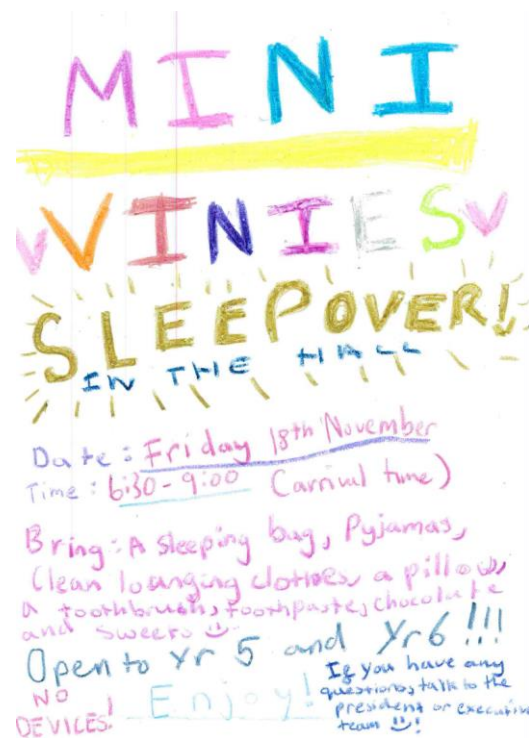 MINI
VINIES
SLEEPOVER!
IN THE HALL
Date: Friday 18th November
Time: 6:30-9:00 (arrival time)
Bring: A sleeping bag, Pyjamas,
Clean lounging clothes, a pillow,
a toothbrush, toothpaste, chocolate
and sweets
Open to Yr 5 and Yr6!!!
NO
DEVICES!
Enjoy!
If you have any
questions, talk to the
president or executive
team !